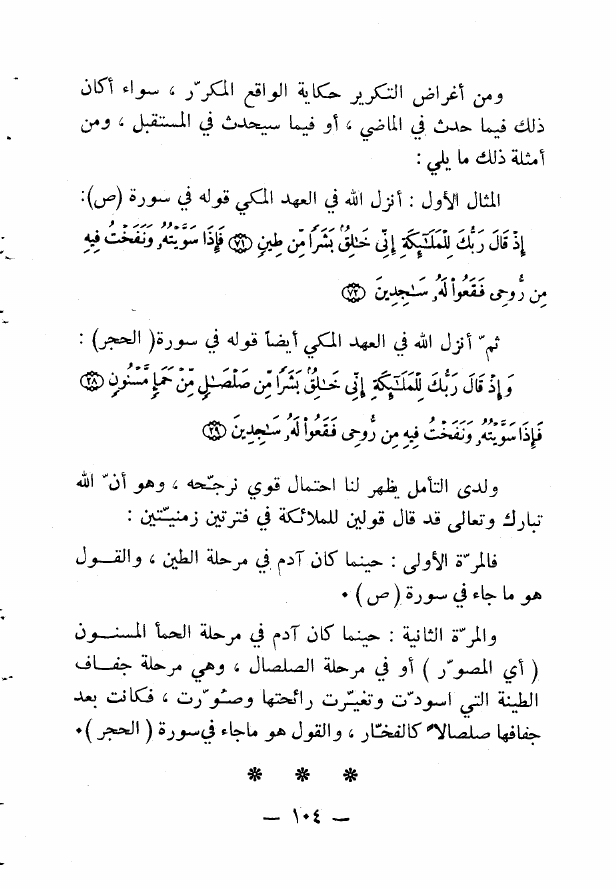 ومن أغراض التكرير حكاية الواقع المكرّر ، سواء أكان
ذلك فيما حدث في الماضي ، أو فيما سيحدث في المستقبل ، ومن
أمثلة ذلك ما يلي :
المثال الأول : أنزل الله في العهد المكي قوله في سورة (ص):
إِذْ قَالَ رَبُّكَ لِلْمَلَـٰٓئِكَةِ إِنِّى خَـٰلِقٌۢ بَشَرًا مِّن طِينٍ ﴿٧١﴾ فَإِذَا سَوَّيْتُهُۥ وَنَفَخْتُ فِيهِ
مِن رُّوحِى فَقَعُوا۟ لَهُۥ سَـٰجِدِينَ ﴿٧٢﴾
ثمّ أنزل الله في العهد المكي أيضاً قوله في سورة( الحجر) :
وَإِذْ قَالَ رَبُّكَ لِلْمَلَـٰٓئِكَةِ إِنِّى خَـٰلِقٌۢ بَشَرًا مِّن صَلْصَـٰلٍ مِّنْ حَمَإٍ مَّسْنُونٍ ﴿٢٨﴾
فَإِذَا سَوَّيْتُهُۥ وَنَفَخْتُ فِيهِ مِن رُّوحِى فَقَعُوا۟ لَهُۥ سَـٰجِدِينَ ﴿٢٩﴾
ولدى التأمل يظهر لنا احتمال قوي نرجّحه ، وهو أنّ الله
تبارك وتعالى قد قال قولين للملائكة في فترتين زمنيّتين :
فالمرّة الأولى : حينما كان آدم في مرحلة الطين ، والقــول
هو ما جاء في سورة ( ص ) ٠
والمرّة الثانية : حينما كان آدم في مرحلة الحمأ المسنــون
( أي المصوّر ) أو في مرحلة الصلصال ، وهي مرحلة جفــاف
الطينة التي اسودّت وتغيّرت رائحتها وصُوّرت ، فكانت بعد
جفافها صلصالاً كالفخّار ، والقول هو ماجاء في سورة ( الحجر )٠
* * *
— ١٠٤ —